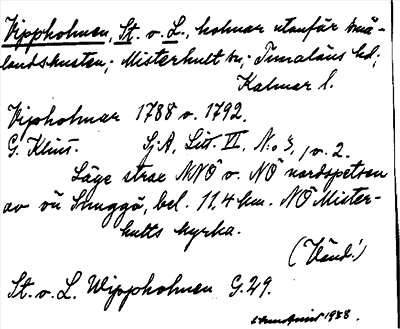 Vippholmen, St. o. L., holmar utanför små-
landskusten; Misterhult sn; Tunaläns hd;
Kalmar l.
Vipholmar 1788 o. 1792.
G. Klint. Sj.A. Litt. II, N:o 3, 1 o. 2.
Läge strax NNÖ o. NÖ nordspetsen
av ön Snuggö, bel. 11.4 km. NÖ Mister-
hults kyrka.
(Vänd!)
St. o. L. Wippholmen G.29.
1938.